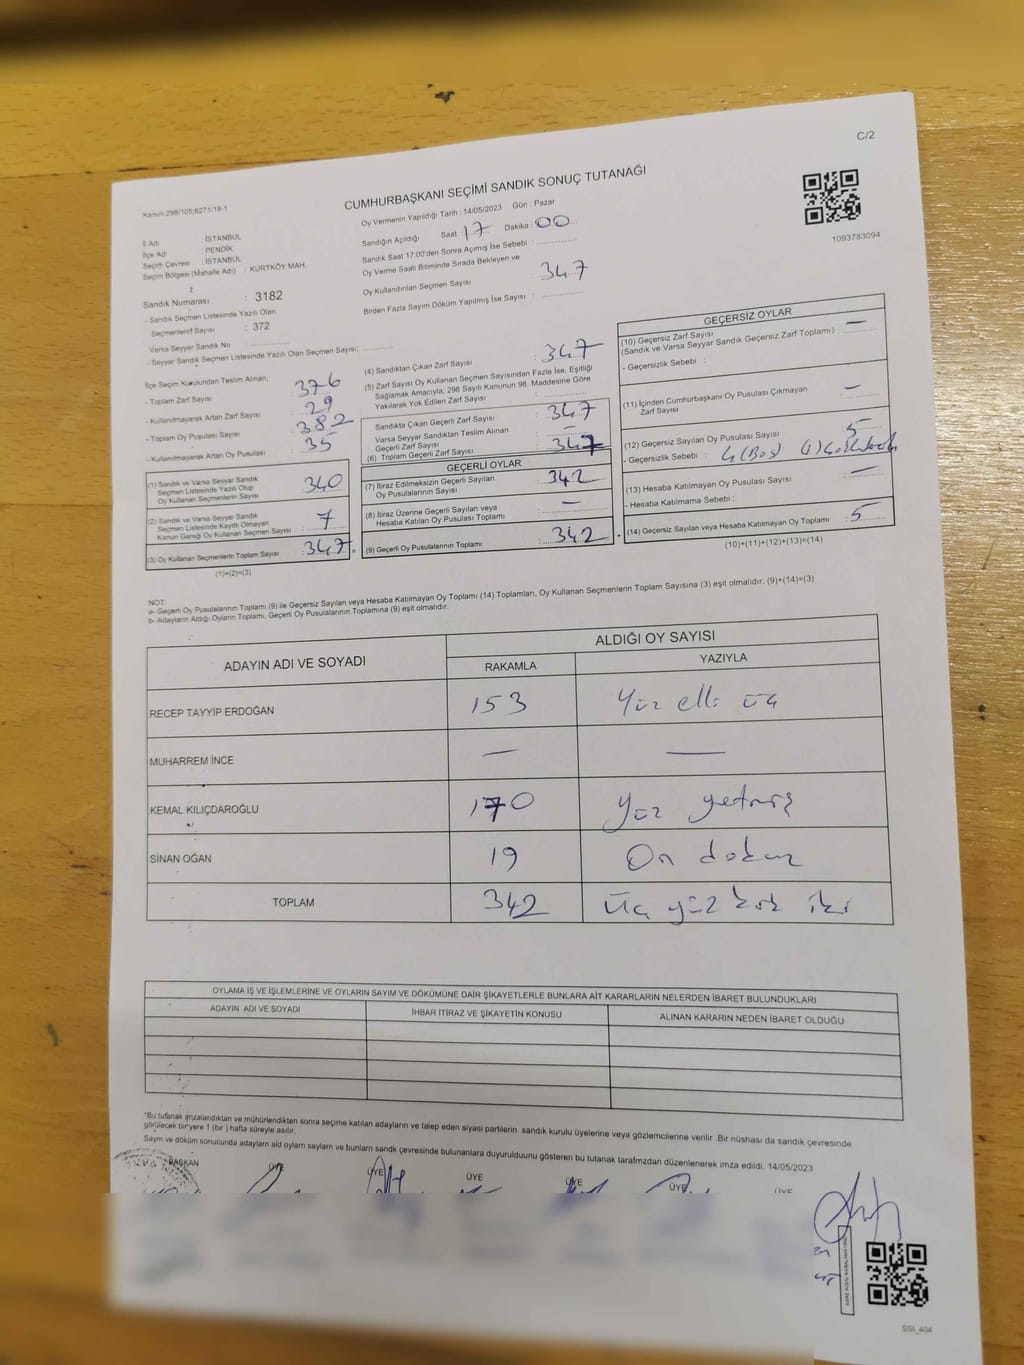 C/2
Kanun:298/105;6271/18-1
CUMHURBAŞKANI SEÇİMİ SANDIK SONUÇ TUTANAĞI
Oy Vermenin Yapıldığı Tarih : 14/05/2023 Gün : Pazar
1093783094
İl Adı : İSTANBUL
İlçe Adı : PENDİK
Seçim Çevresi : İSTANBUL
Seçim Bölgesi (Mahalle Adı) : KURTKÖY MAH.
Sandık Numarası : 3182
- Sandık Seçmen Listesinde Yazılı Olan
Seçmenlerin Sayısı : 372
Varsa Seyyar Sandık No :
- Seyyar Sandık Seçmen Listesinde Yazılı Olan Seçmen Sayısı:
Sandığın Açıldığı Saat 17 Dakika : 00
Sandık Saat 17:00'den Sonra Açımış İse Sebebi :
Oy Verme Saati Bitiminde Sırada Bekleyen ve
Oy Kullandırılan Seçmen Sayısı : 347
Birden Fazla Sayım Döküm Yapılmış İse Sayısı :
İlçe Seçim Kurulundan Teslim Alınan;
- Toplam Zarf Sayısı : 376
- Kullanılmayarak Artan Zarf Sayısı : 29
- Toplam Oy Pusulası Sayısı : 382
- Kullanılmayarak Artan Oy Pusulası : 35
(1) Sandık ve Varsa Seyyar Sandık
Seçmen Listesinde Yazılı Olup
Oy Kullanan Seçmenlerin Sayısı : 340
(2) Sandık ve Varsa Seyyar Sandık
Seçmen Listesinde Kayıtlı Olmayan
Kanun Gereği Oy Kullanan Seçmen Sayısı : 7
(3) Oy Kullanan Seçmenlerin Toplam Sayısı : 347
(1)+(2)=(3)
(4) Sandıktan Çıkan Zarf Sayısı : 347
(5) Zarf Sayısı Oy Kullanan Seçmen Sayısından Fazla İse, Eşitliği
Sağlamak Amacıyla; 298 Sayılı Kanunun 98. Maddesine Göre
Yakılarak Yok Edilen Zarf Sayısı :
Sandıkta Çıkan Geçerli Zarf Sayısı : 347
Varsa Seyyar Sandıktan Teslim Alınan
Geçerli Zarf Sayısı : —
(6) Toplam Geçerli Zarf Sayısı : 347
GEÇERLİ OYLAR
(7) İtiraz Edilmeksizin Geçerli Sayılan
Oy Pusulalarının Sayısı : 342
(8) İtiraz Üzerine Geçerli Sayılan veya
Hesaba Katılan Oy Pusulası Toplamı : —
(9) Geçerli Oy Pusulalarının Toplamı : 342
GEÇERSİZ OYLAR
(10) Geçersiz Zarf Sayısı : —
(Sandık ve Varsa Seyyar Sandık Geçersiz Zarf Toplamı)
- Geçersizlik Sebebi :
(11) İçinden Cumhurbaşkanı Oy Pusulası Çıkmayan
Zarf Sayısı : —
(12) Geçersiz Sayılan Oy Pusulası Sayısı : 5
- Geçersizlik Sebebi : 4 (Boş) (1)
(13) Hesaba Katılmayan Oy Pusulası Sayısı : —
- Hesaba Katılmama Sebebi :
(14) Geçersiz Sayılan veya Hesaba Katılmayan Oy Toplamı : 5
(10)+(11)+(12)+(13)=(14)
NOT:
a- Geçerli Oy Pusulalarının Toplamı (9) ile Geçersiz Sayılan veya Hesaba Katılmayan Oy Toplamı (14) Toplamları, Oy Kullanan Seçmenlerin Toplam Sayısına (3) eşit olmalıdır. (9)+(14)=(3)
b- Adayların Aldığı Oyların Toplamı, Geçerli Oy Pusulalarının Toplamına (9) eşit olmalıdır.
ADAYIN ADI VE SOYADI ALDIĞI OY SAYISI
RAKAMLA YAZIYLA
RECEP TAYYİP ERDOĞAN 153 Yüz elli üç
MUHARREM İNCE — —
KEMAL KILIÇDAROĞLU 170 Yüz yetmiş
SİNAN OĞAN 19 On dokuz
TOPLAM 342 Üç yüz kırk iki
OYLAMA İŞ VE İŞLEMLERİNE VE OYLARIN SAYIM VE DÖKÜMÜNE DAİR ŞİKAYETLERLE BUNLARA AİT KARARLARIN NELERDEN İBARET BULUNDUKLARI
ADAYIN ADI VE SOYADI İHBAR İTİRAZ VE ŞİKAYETİN KONUSU ALINAN KARARIN NEDEN İBARET OLDUĞU
*Bu tutanak imzalandıktan ve mühürlendikten sonra seçime katılan adayların ve talep eden siyasi partilerin sandık kurulu üyelerine veya gözlemcilerine verilir .Bir nüshası da sandık çevresinde
görülecek bir yere 1 (bir ) hafta süreyle asılır.
Sayım ve döküm sonucunda adayların ald oyların sayların ve bunların sandk çevresinde bulunanlara duyurulduunu gösteren bu tutanak tarafmzdan düzenlenerek imza edildi. 14/05/2023
BAŞKAN ÜYE ÜYE ÜYE ÜYE ÜYE ÜYE
SSI_404